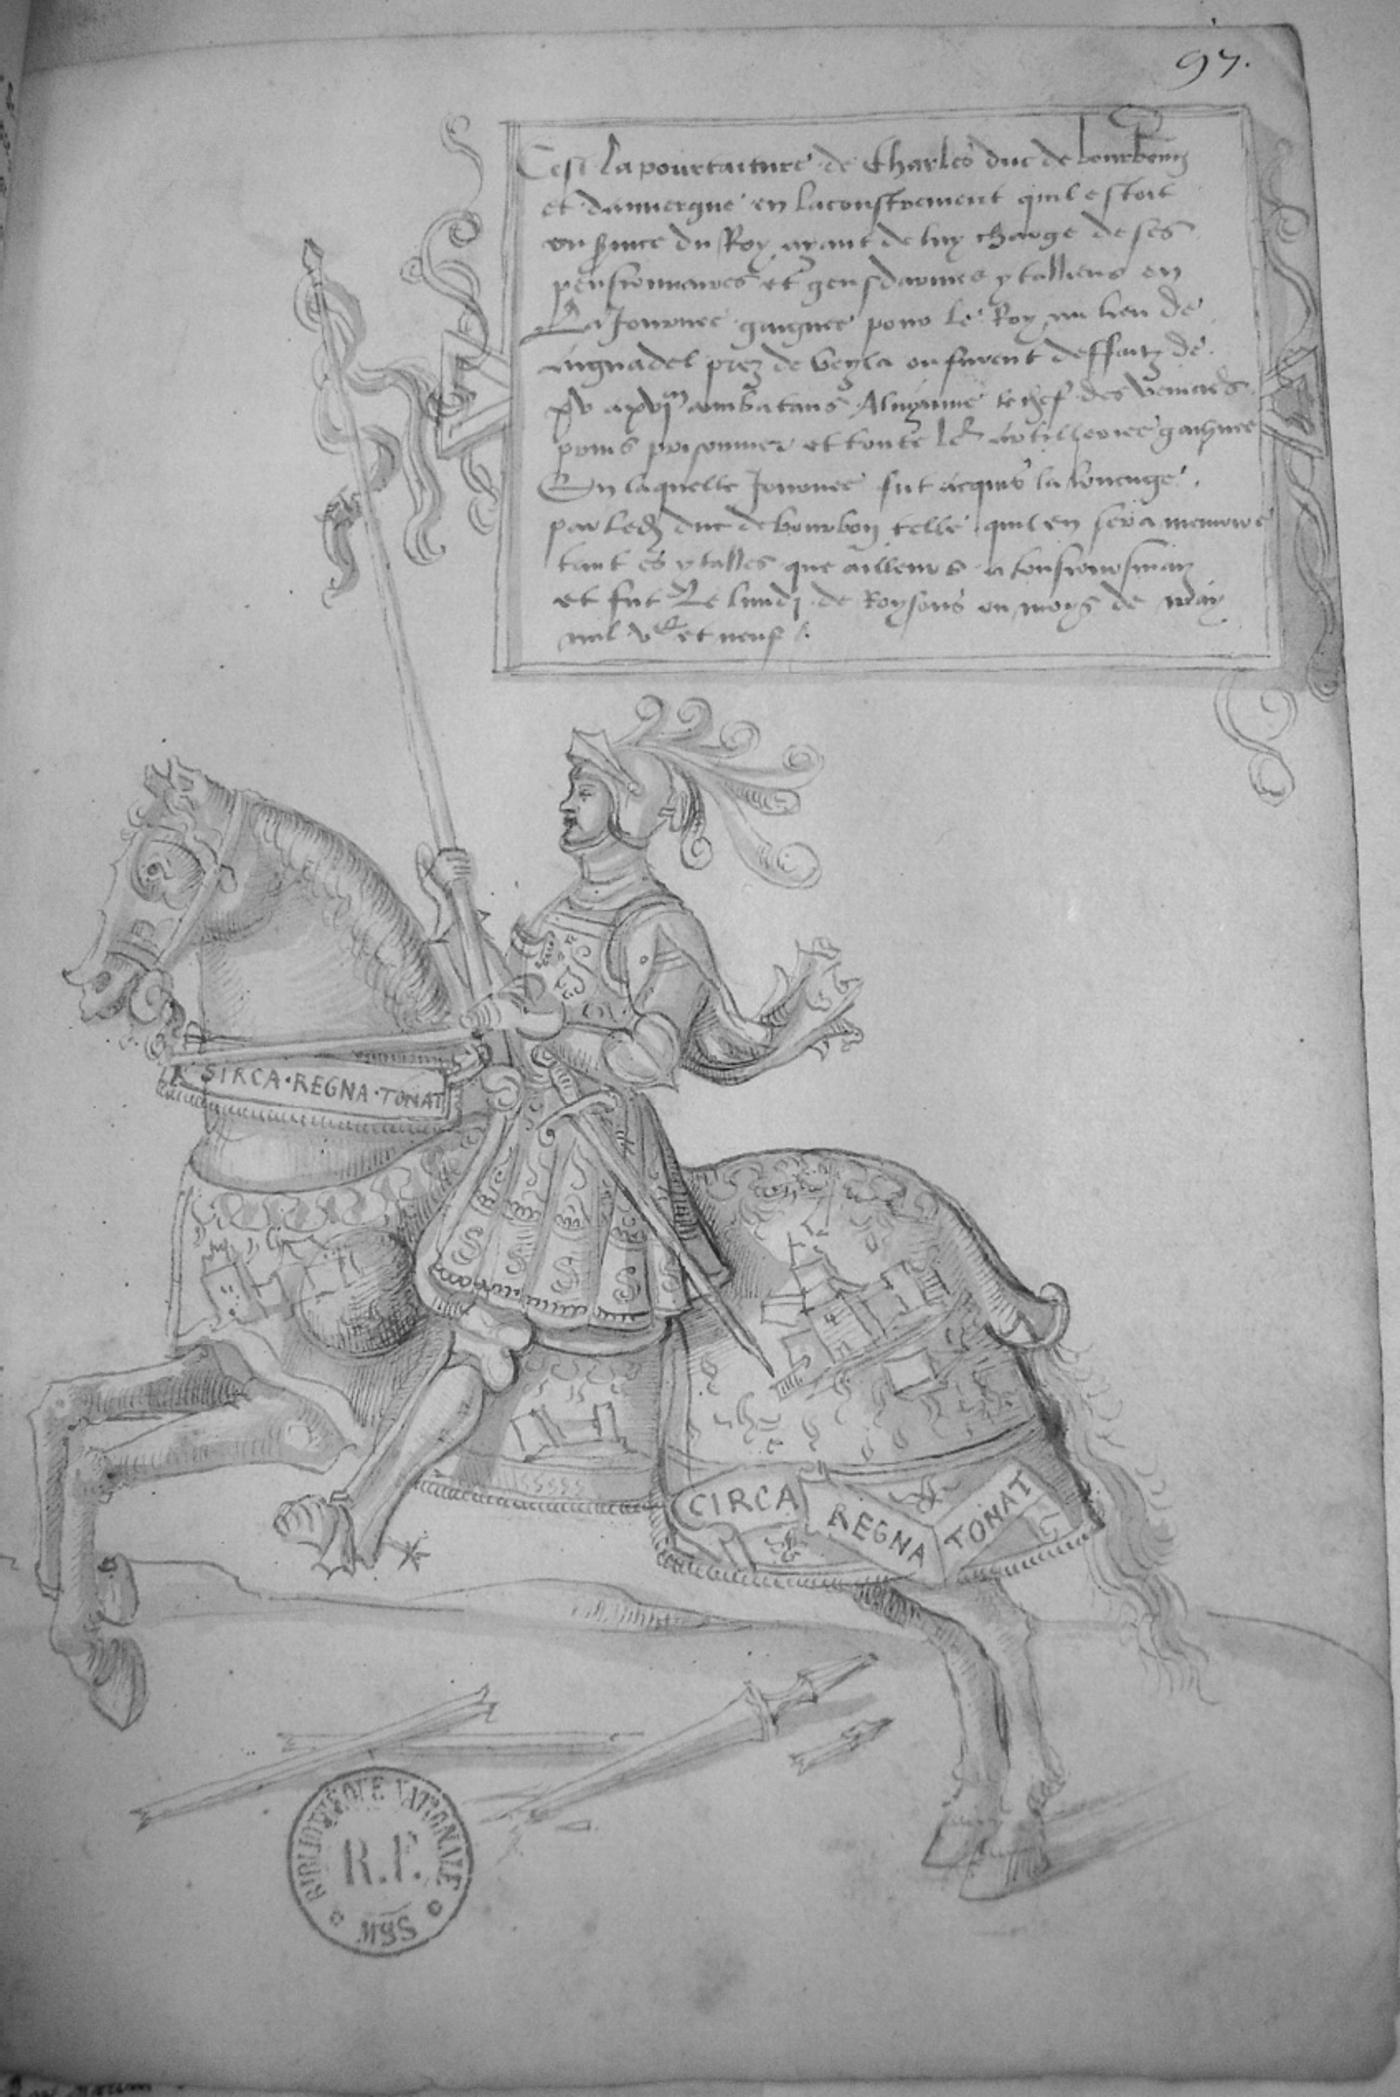 97.
Cest la pourtaiture de Charles duc de bourbon
et dauvergne en lacoustrement quil estoit
ou service du Roy ayant de luy charge de ses
pensionnaires et gensdarmes ytalliens en
La Journee gaignee pour le Roy au lieu de
aignadel prez de veyla ou furent deffaitz de
xv a xvjm combatans Alviane le chef des venicies
prins prisonnier et toute le artillerie gaignee
En laquelle Journee fut acquis la louenge
par led duc de bourbon telle quil en sera memoire
tant es ytalles que ailleurs a tousjoursmaiz
et fut Le lundi de Roysons ou moys de may
mil vc et neuf
SIRCA·REGNA·TONAT
CIRCA REGNA TONAT
BIBLIOTHÈQUE NATIONALE
R.F.
MSS